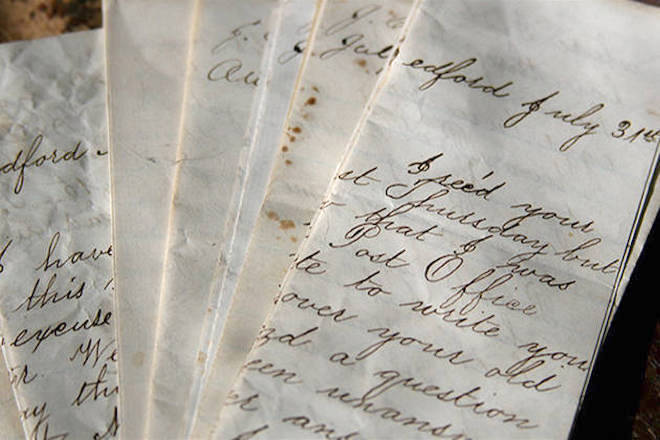 dford
I have
this
excuse
r. We
ay th
J.
Au
J.
J. Jul
edford July 31st
I rec'd your
st Thursday but
r that I was
Post Office
te to write you
over your old
nd a question
een unansw
er an